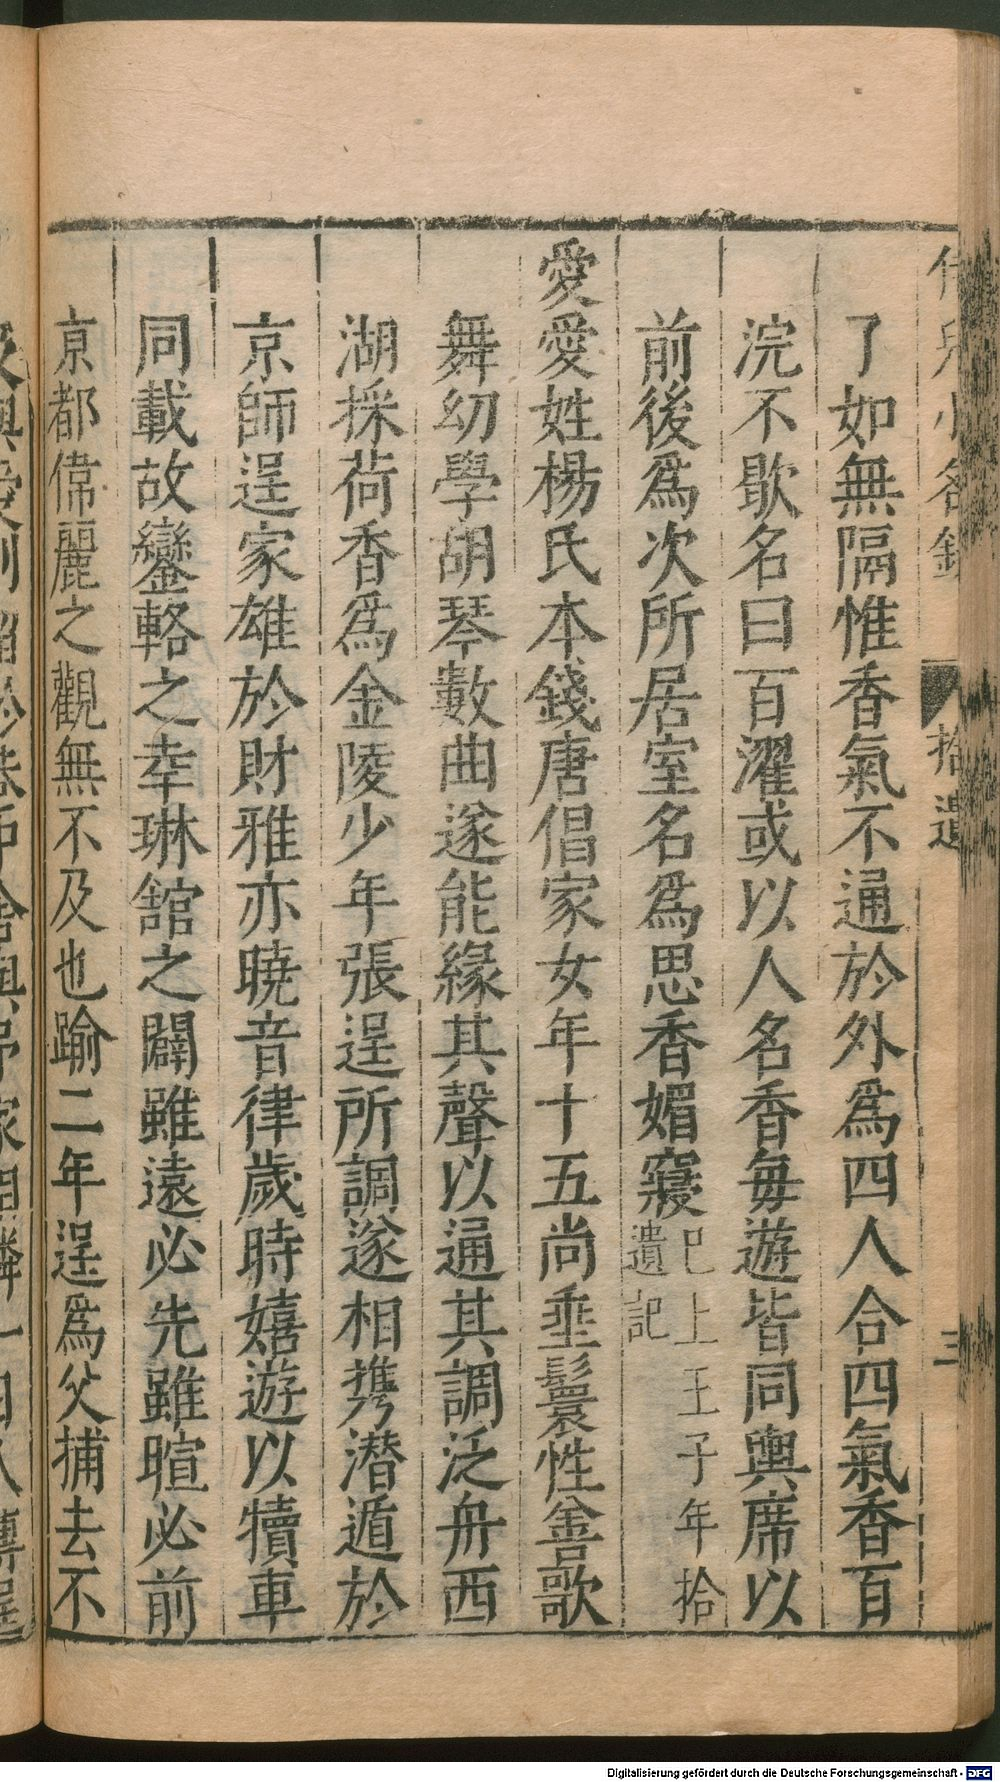 侍兒小名錄 拾遺 三
了如無隔惟香氣不通於外爲四人合四氣香百
浣不歇名曰百濯或以人名香每遊皆同輿席以
前後爲次所居室名爲思香媚寢巳上王子年拾
遺記
愛愛姓楊氏本錢唐倡家女年十五尚垂鬟性善歌
舞幼學胡琴數曲遂能緣其聲以通其調泛舟西
湖採荷香爲金陵少年張逞所調遂相携潜遁於
京師逞家雄於財雅亦曉音律歲時嬉遊以犢車
同載故鑾輅之幸琳館之闢雖遠必先雖暄必前
京都偉麗之觀無不及也踰二年逞爲父捕去不
Digitalisierung gefördert durch die Deutsche Forschungsgemeinschaft - DFG